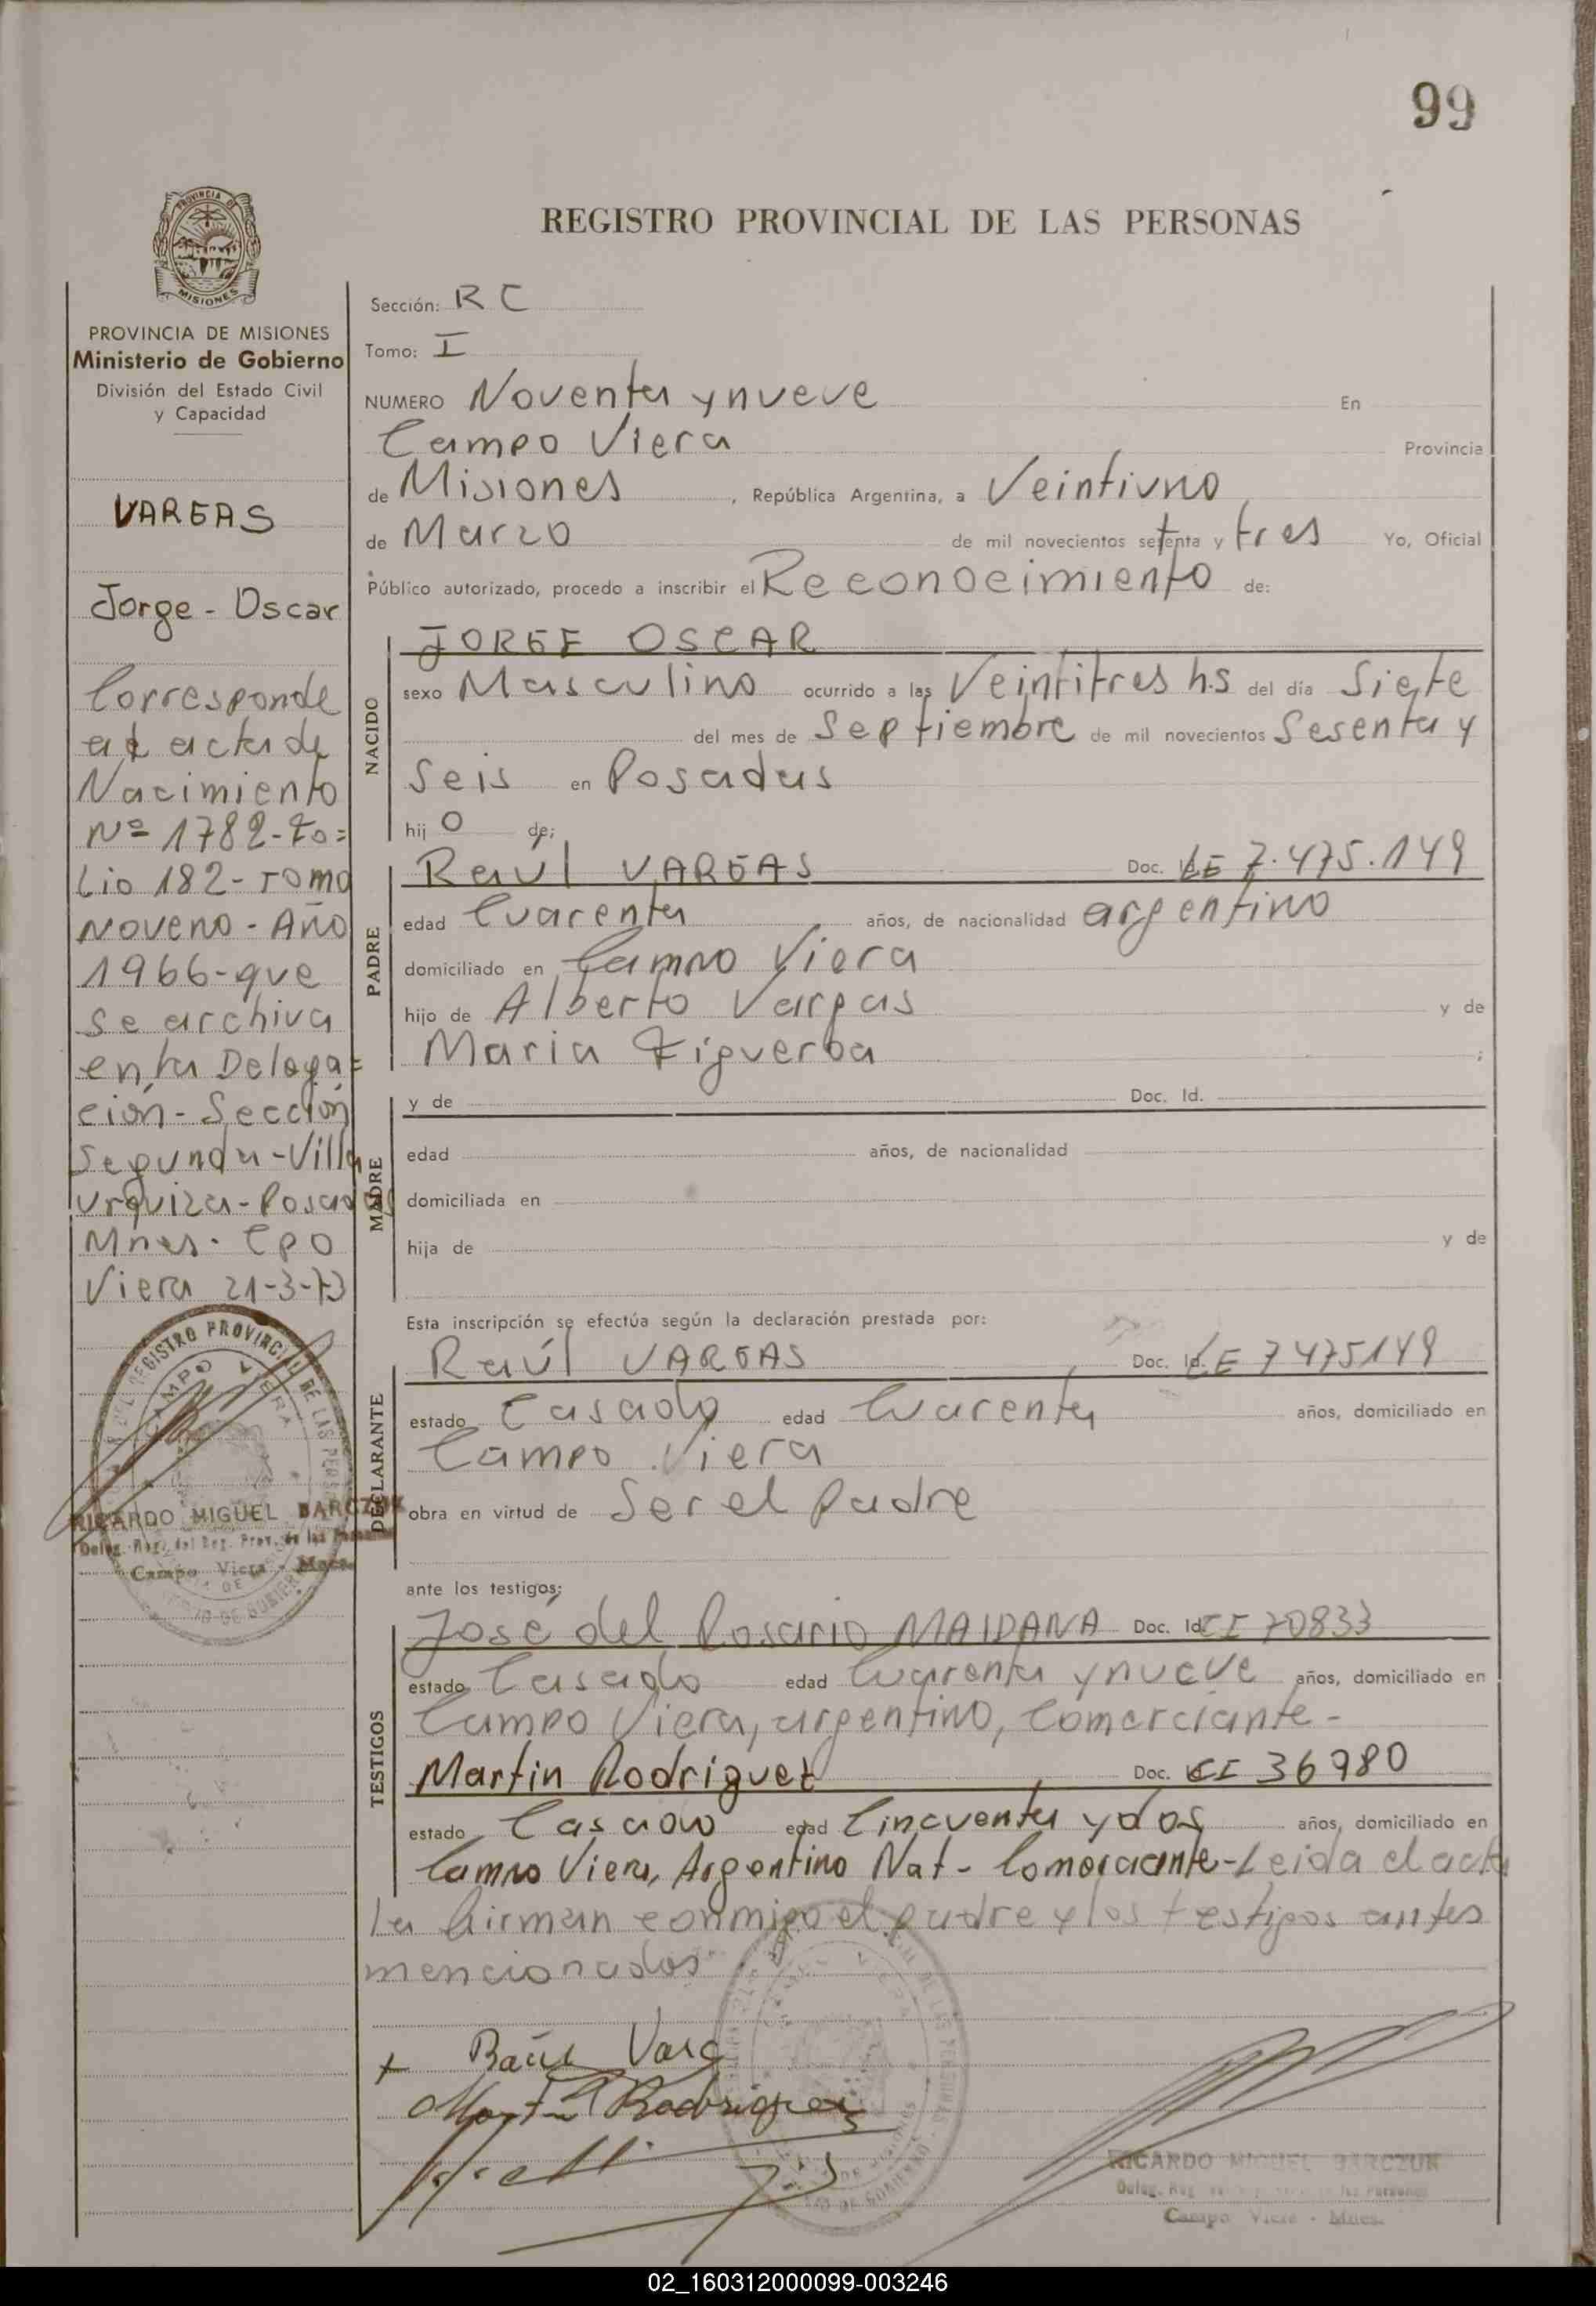 99
REGISTRO PROVINCIAL DE LAS PERSONAS
PROVINCIA DE
MISIONES
PROVINCIA DE MISIONES
Ministerio de Gobierno
División del Estado Civil
y Capacidad
VARGAS
Jorge - Oscar
Corresponde
al acta de
Nacimiento
Nº 1782-Fo=
lio 182- Tomo
Noveno - Año
1966-que
se archiva
en la Delega=
ción- Sección
Segunda - Villa
Urquiza- Posadas
Mnes. Cpo
Viera 21-3-73
REGISTRO PROVINCIAL DE LAS
CAMPO VIERA
RICARDO MIGUEL BARCZUK
Campo Viera - Mnes.
Sección: R C
Tomo: I
NUMERO Noventa y nueve En
Campo Viera Provincia
de Misiones , República Argentina, a Veintiuno
de Marzo de mil novecientos setenta y tres Yo, Oficial
Público autorizado, procedo a inscribir el Reconocimiento de:
NACIDO
JORGE OSCAR
sexo Masculino ocurrido a las Veintitres hs del día Siete
del mes de Septiembre de mil novecientos Sesenta y
Seis en Posadas
hij o de;
PADRE
Raúl VARGAS Doc. LE 7.475.149
edad Cuarenta años, de nacionalidad argentino
domiciliado en Campo Viera
hijo de Alberto Vargas y de
Maria Figueroa ;
MADRE
y de Doc. Id.
edad años, de nacionalidad
domiciliada en
hija de y de
Esta inscripción se efectúa según la declaración prestada por:
DECLARANTE
Raúl VARGAS Doc. Id. LE 7475149
estado Casado edad Cuarenta años, domiciliado en
Campo Viera
obra en virtud de Ser el Padre
ante los testigos:
TESTIGOS
José del Rosario MAIDANA Doc. Id. CI 70833
estado Casado edad Cuarenta y nueve años, domiciliado en
Campo Viera, argentino, Comerciante -
Martin Rodriguez Doc. CI 36980
estado Casado edad Cincuenta y dos años, domiciliado en
Campo Viera, Argentino Nat - Comerciante - Leida el acta
la firman conmigo el padre y los testigos antes
mencionados
Raúl Varg
Martin Rodriguez
RICARDO MIGUEL BARCZUK
Campo Viera - Mnes.
02_160312000099-003246